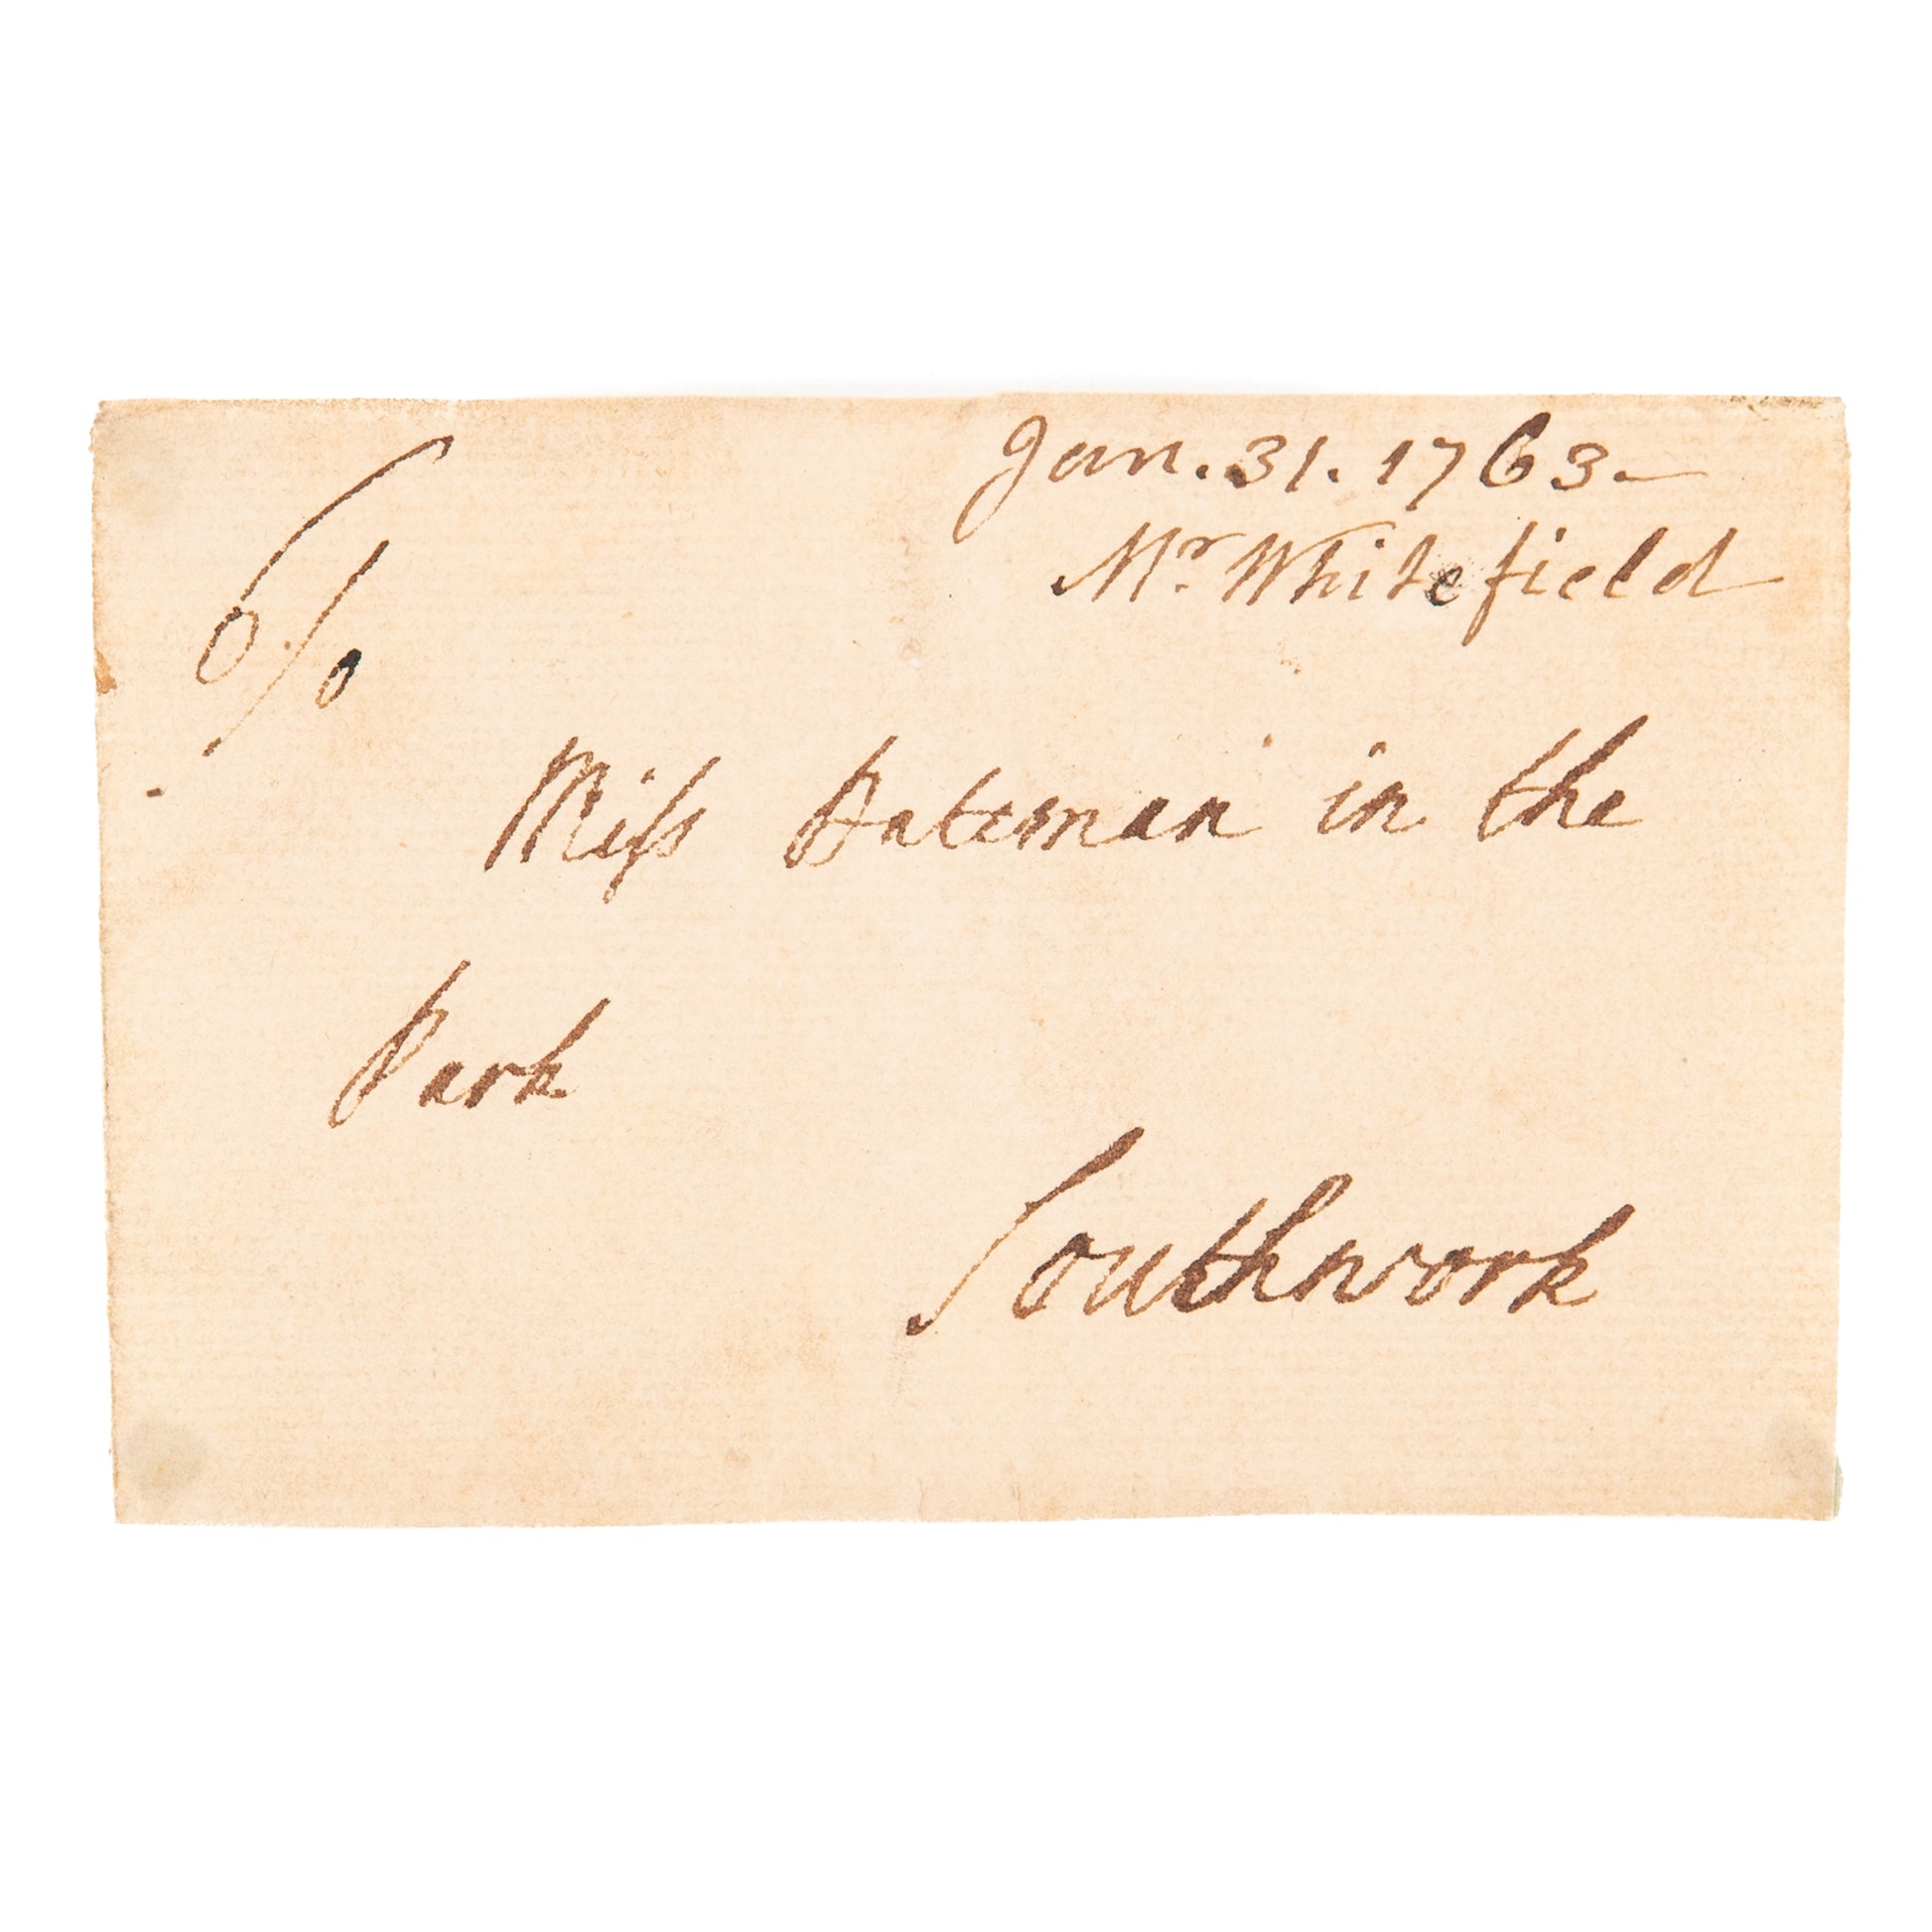 Jan. 31. 1763-
Mr. Whitefield
6/0
Miſs Bateman in the
Park
Southwork